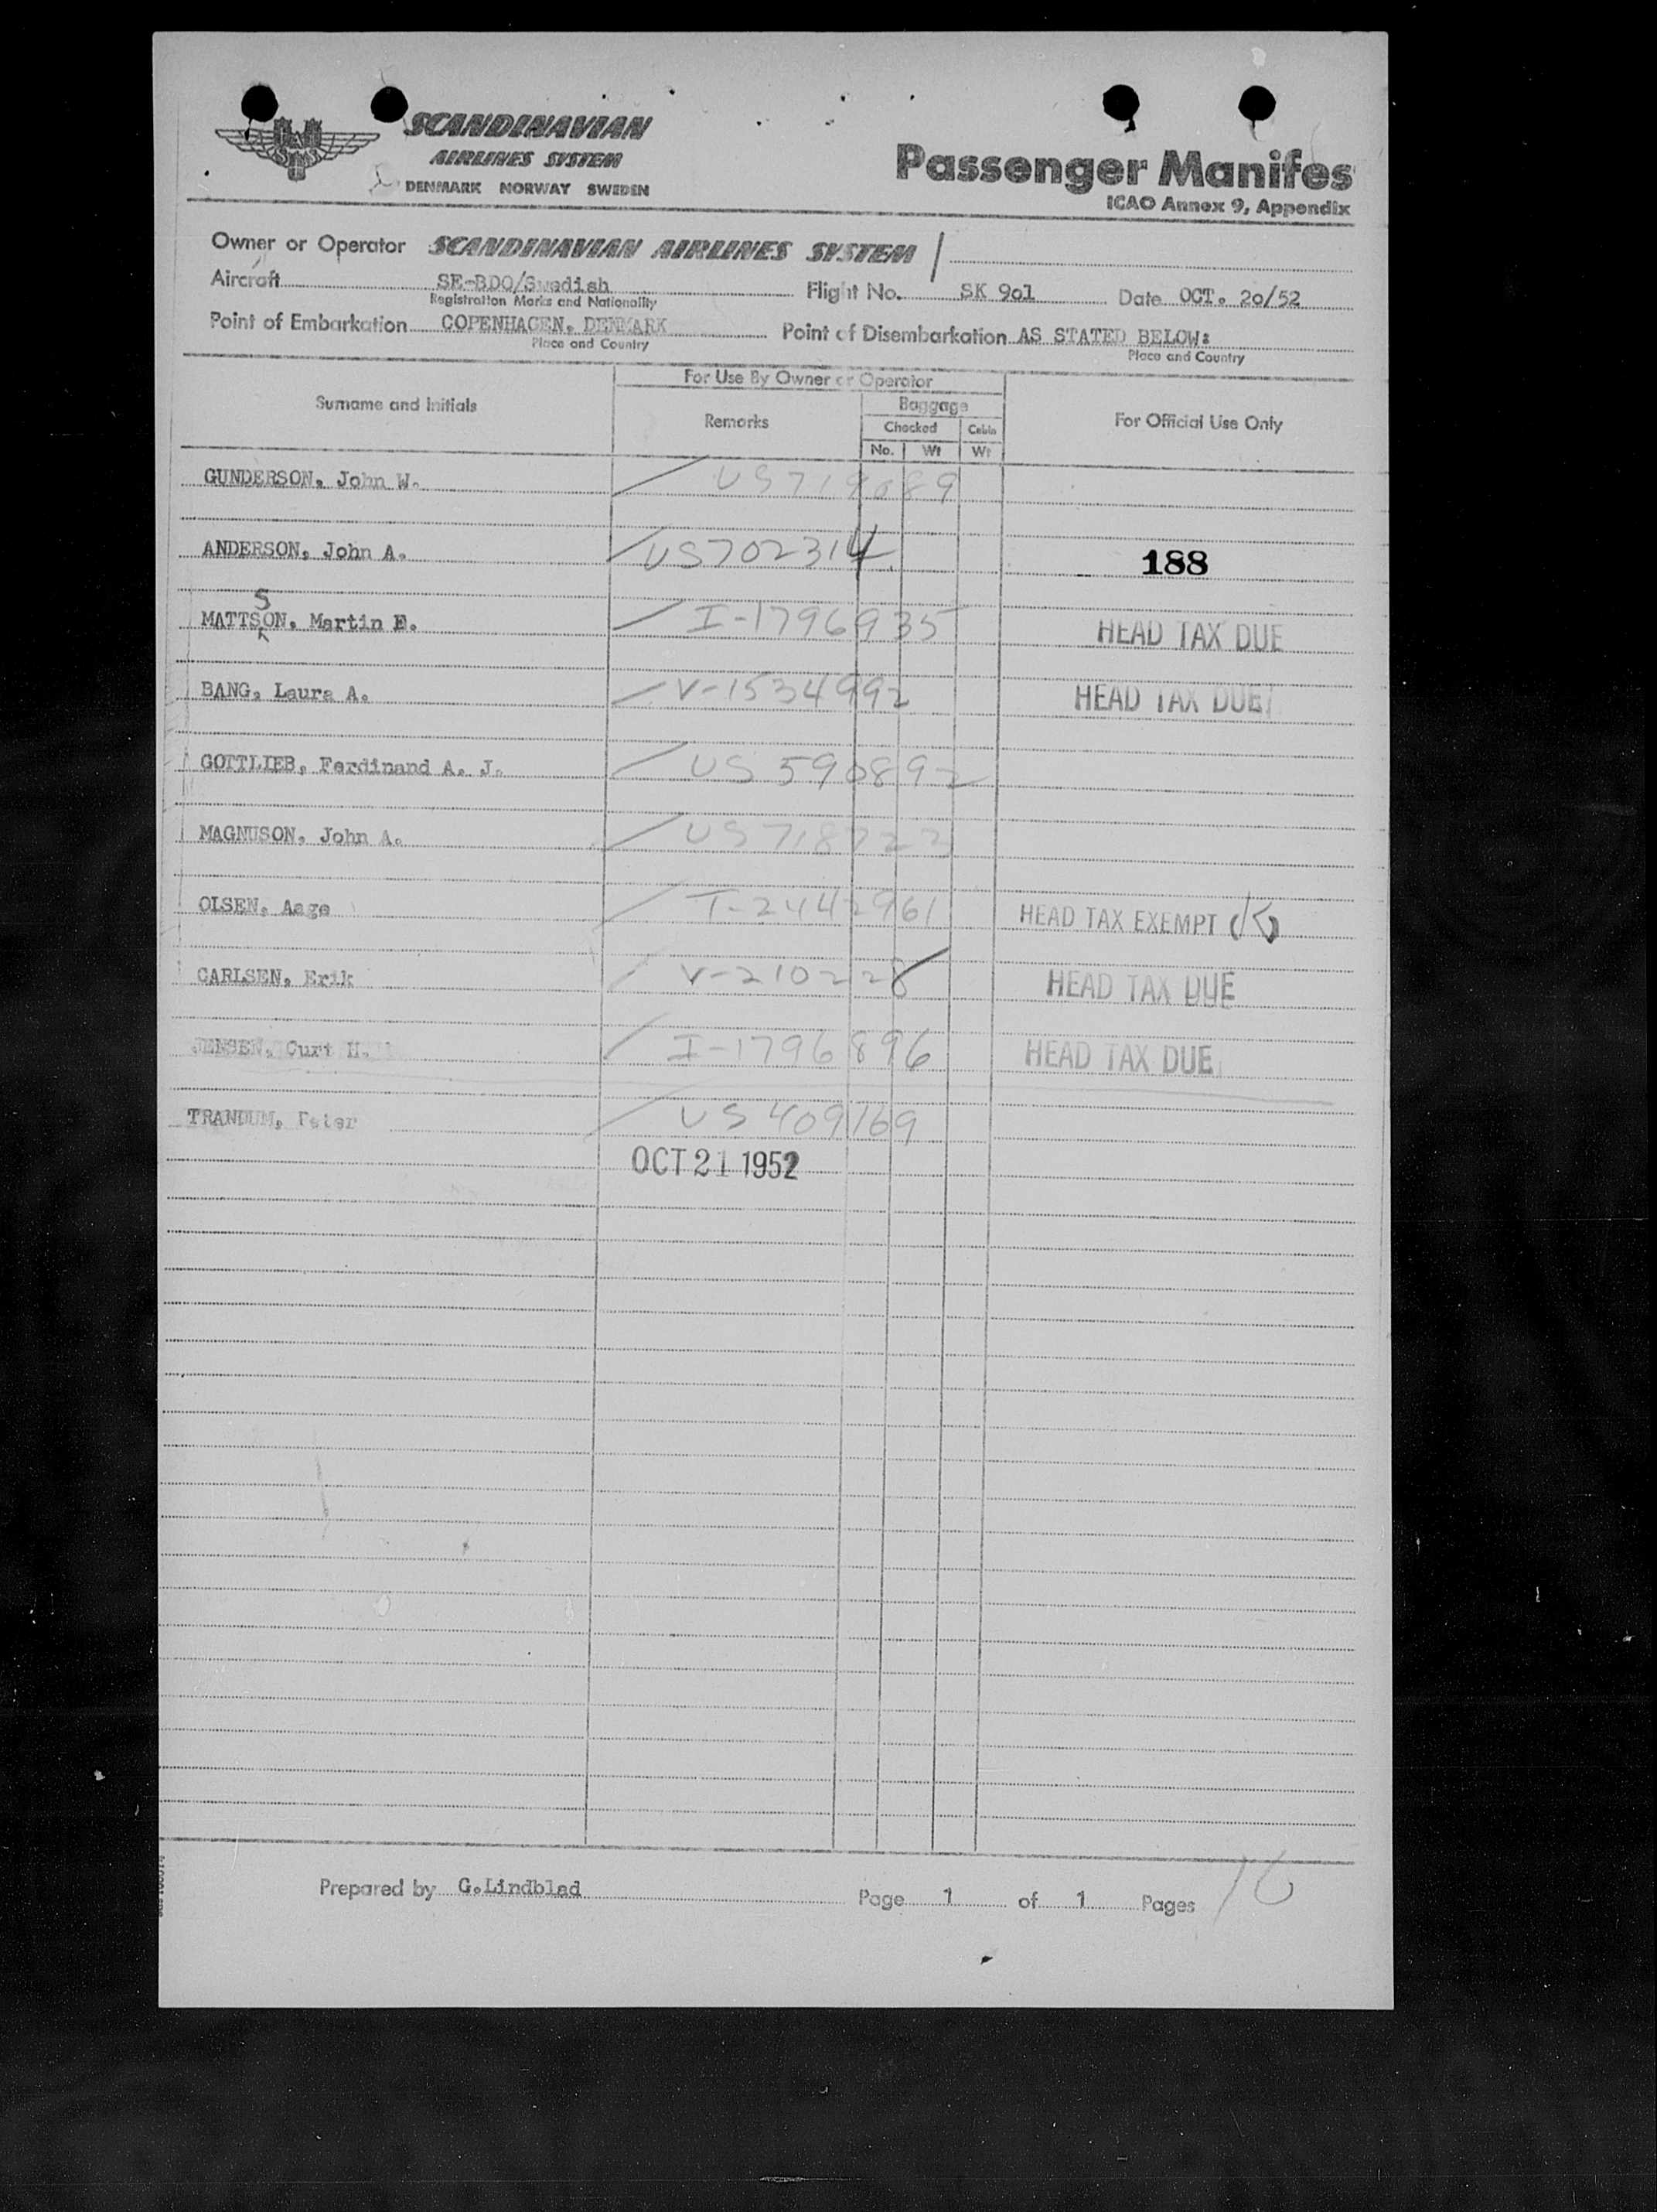 SCANDINAVIAN
AIRLINES SYSTEM
DENMARK NORWAY SWEDEN
Passenger Manifes
ICAO Annex 9, Appendix
Owner or Operator SCANDINAVIAN AIRLINES SYSTEM
Aircraft SE-BDO/Swedish Flight No. SK 9o1 Date OCT. 2o/52
Registration Marks and Nationality
Point of Embarkation COPENHAGEN, DENMARK Point of Disembarkation AS STATED BELOW:
Place and Country Place and Country
For Use By Owner or Operator
Surname and Initials Remarks Baggage For Official Use Only
Checked Cabin
No. Wt Wt
GUNDERSON, John W. US719089
ANDERSON, John A. US702314 188
S
MATTSON, Martin E. I-1796935 HEAD TAX DUE
BANG, Laura A. V-1534992 HEAD TAX DUE
GOTTLIEB, Ferdinand A. J. US 590892
MAGNUSON, John A. US 718722
OLSEN, Aage T-2442961 HEAD TAX EXEMPT
CARLSEN, Erik V-210228 HEAD TAX DUE
JENSEN, Curt H. I-1796896 HEAD TAX DUE
TRANDUM, Peter US 409169
OCT 21 1952
Prepared by G.Lindblad Page 1 of 1 Pages
16